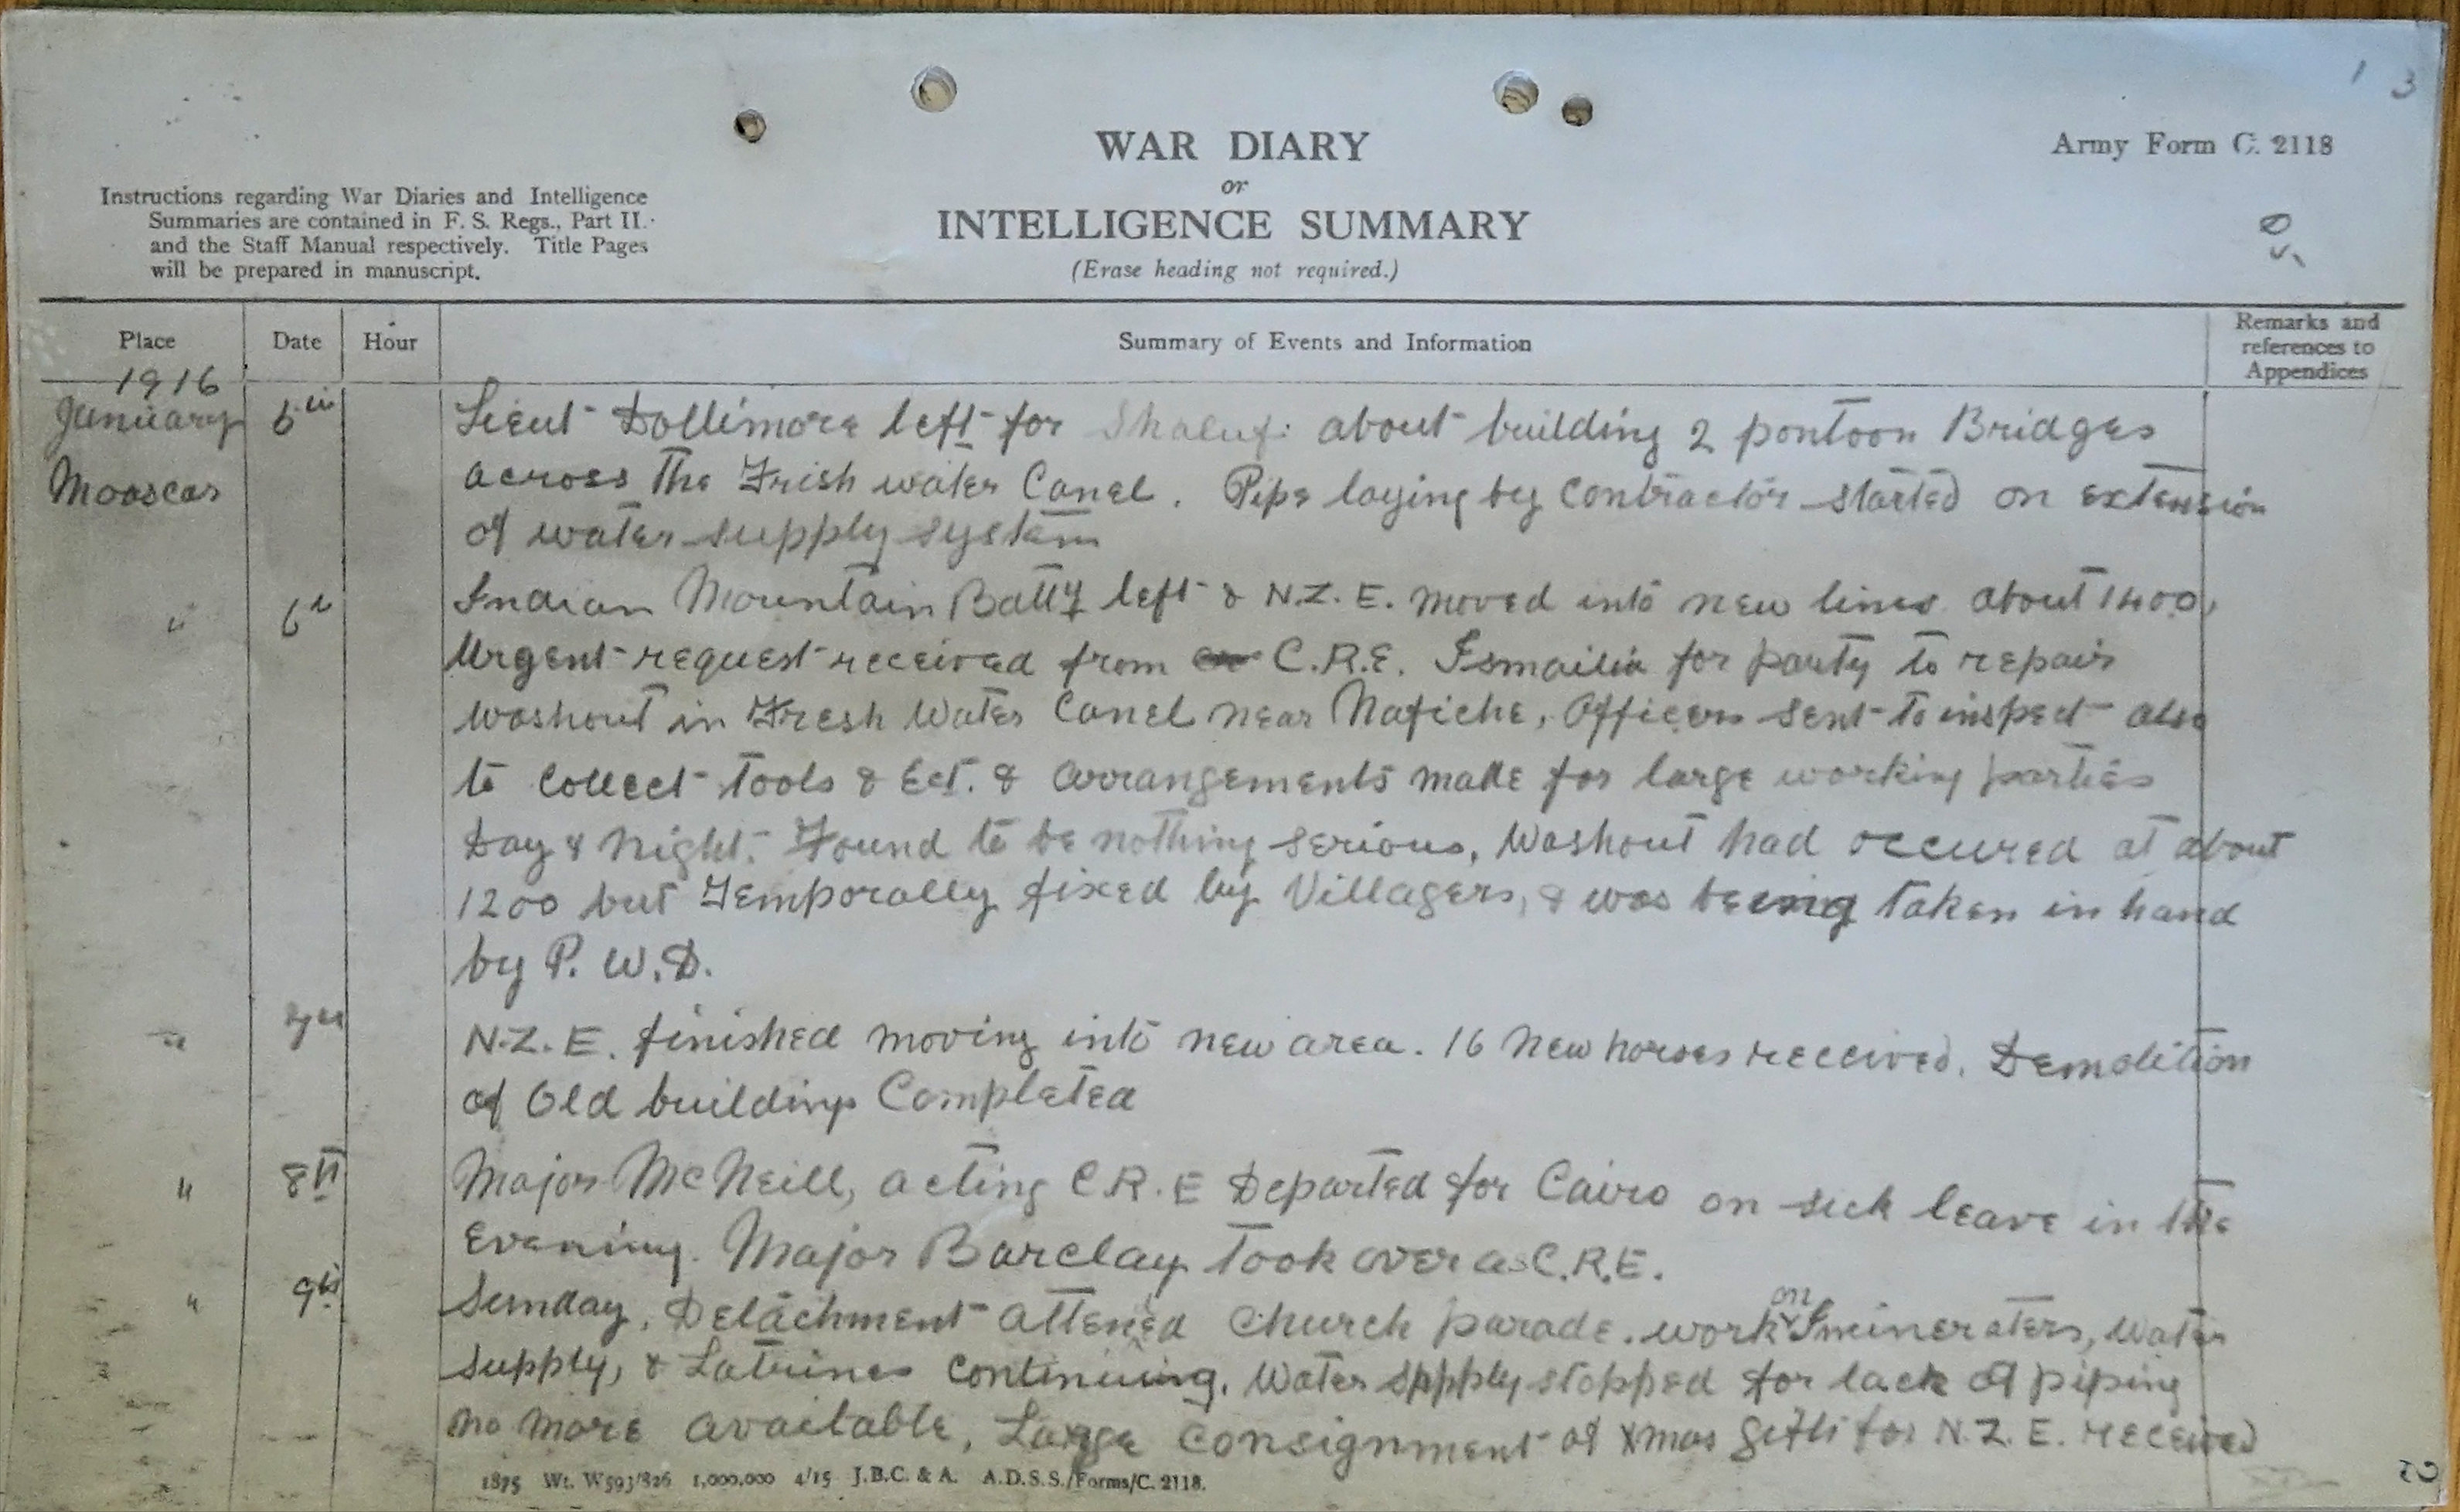 1 3
WAR DIARY
or
INTELLIGENCE SUMMARY
(Erase heading not required.)
Army Form C. 2118
Instructions regarding War Diaries and Intelligence
Summaries are contained in F. S. Regs., Part II.
and the Staff Manual respectively. Title Pages
will be prepared in manuscript.
Place Date Hour Summary of Events and Information Remarks and references to Appendices
1916
January 5th Lieut Dollimore left for Shaluf about building 2 pontoon Bridges
Moascar across The Frish water Canel. Pipe laying by Contractor started on extension
of water supply system
" 6th Indian Mountain Batty left & N.Z.E. moved into new lines about 1400,
Urgent request received from C.R.E. Ismailia for party to repair
washout in Fresh Water Canel near Nafiche, Officers sent to inspect also
to collect tools & Ect. & arrangements made for large working parties
Day & Night. Found to be nothing serious, Washout had occured at about
1200 but Temporally fixed by Villagers, & was being taken in hand
by P.W.D.
" 7th N.Z.E. finished moving into new area. 16 New horses received. Demolition
of Old buildings Completed
" 8th Major McNeill, acting C.R.E Departed for Cairo on sick leave in the
Evening. Major Barclay Took over as C.R.E.
" 9th Sunday, Detachment attened Church parade. work on Iminerators, Water
Supply, & Latrines continuing. Water Sppply stopped for lack of piping
no more available, Large Consignment of Xmas Gifts for N.Z.E. received
1875 Wt. W593/826 1,000,000 4/15 J.B.C. & A. A.D.S.S./Forms/C. 2118.